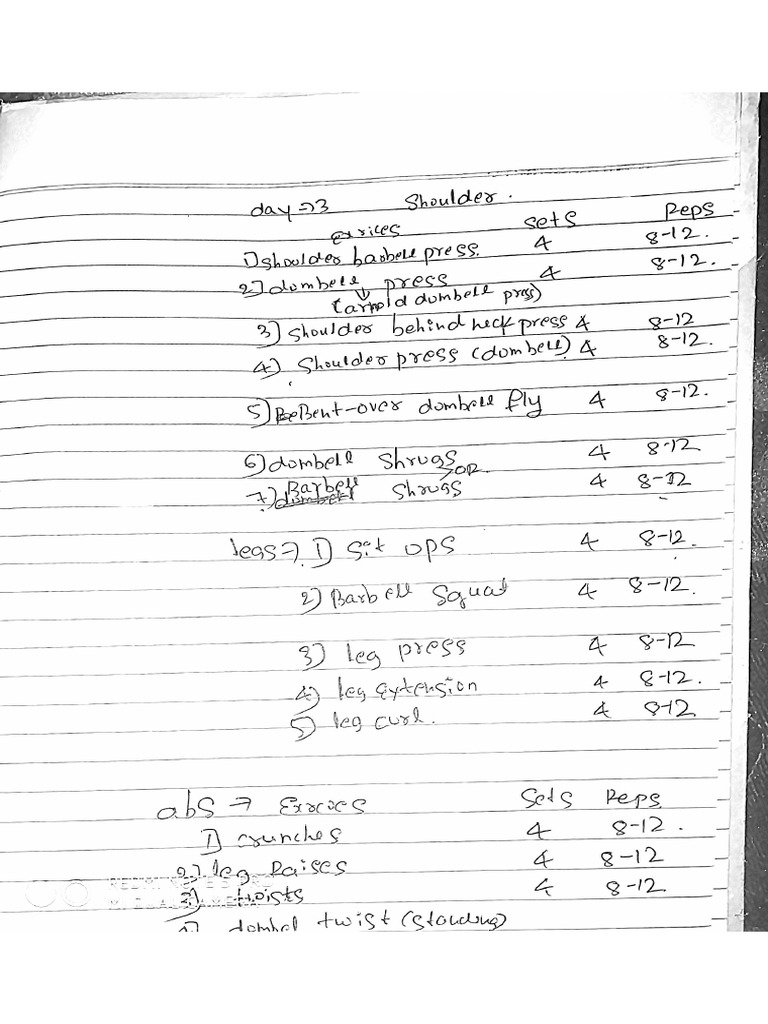 day => 3 Shoulder.
exrices sets Reps
1) shoulder barbell press. 4 8-12.
2) dombell press 4 8-12.
(arnold dombell press)
3) shoulder behind neck press 4 8-12
4) Shoulder press (dombell) 4 8-12.
5) Bent-over dombell fly 4 8-12.
6) dombell Shrugs 4 8-12
OR
7) Barbell Shrugs 4 8-12
legs => 1) Sit ops 4 8-12.
2) Barbell Squat 4 8-12.
3) leg press 4 8-12
4) leg extension 4 8-12.
5) leg curl. 4 8-12
abs => Exrcies Sets Reps
1) crunches 4 8-12.
2) leg Raises 4 8-12
3) twists 4 8-12
dombel twist (standing)